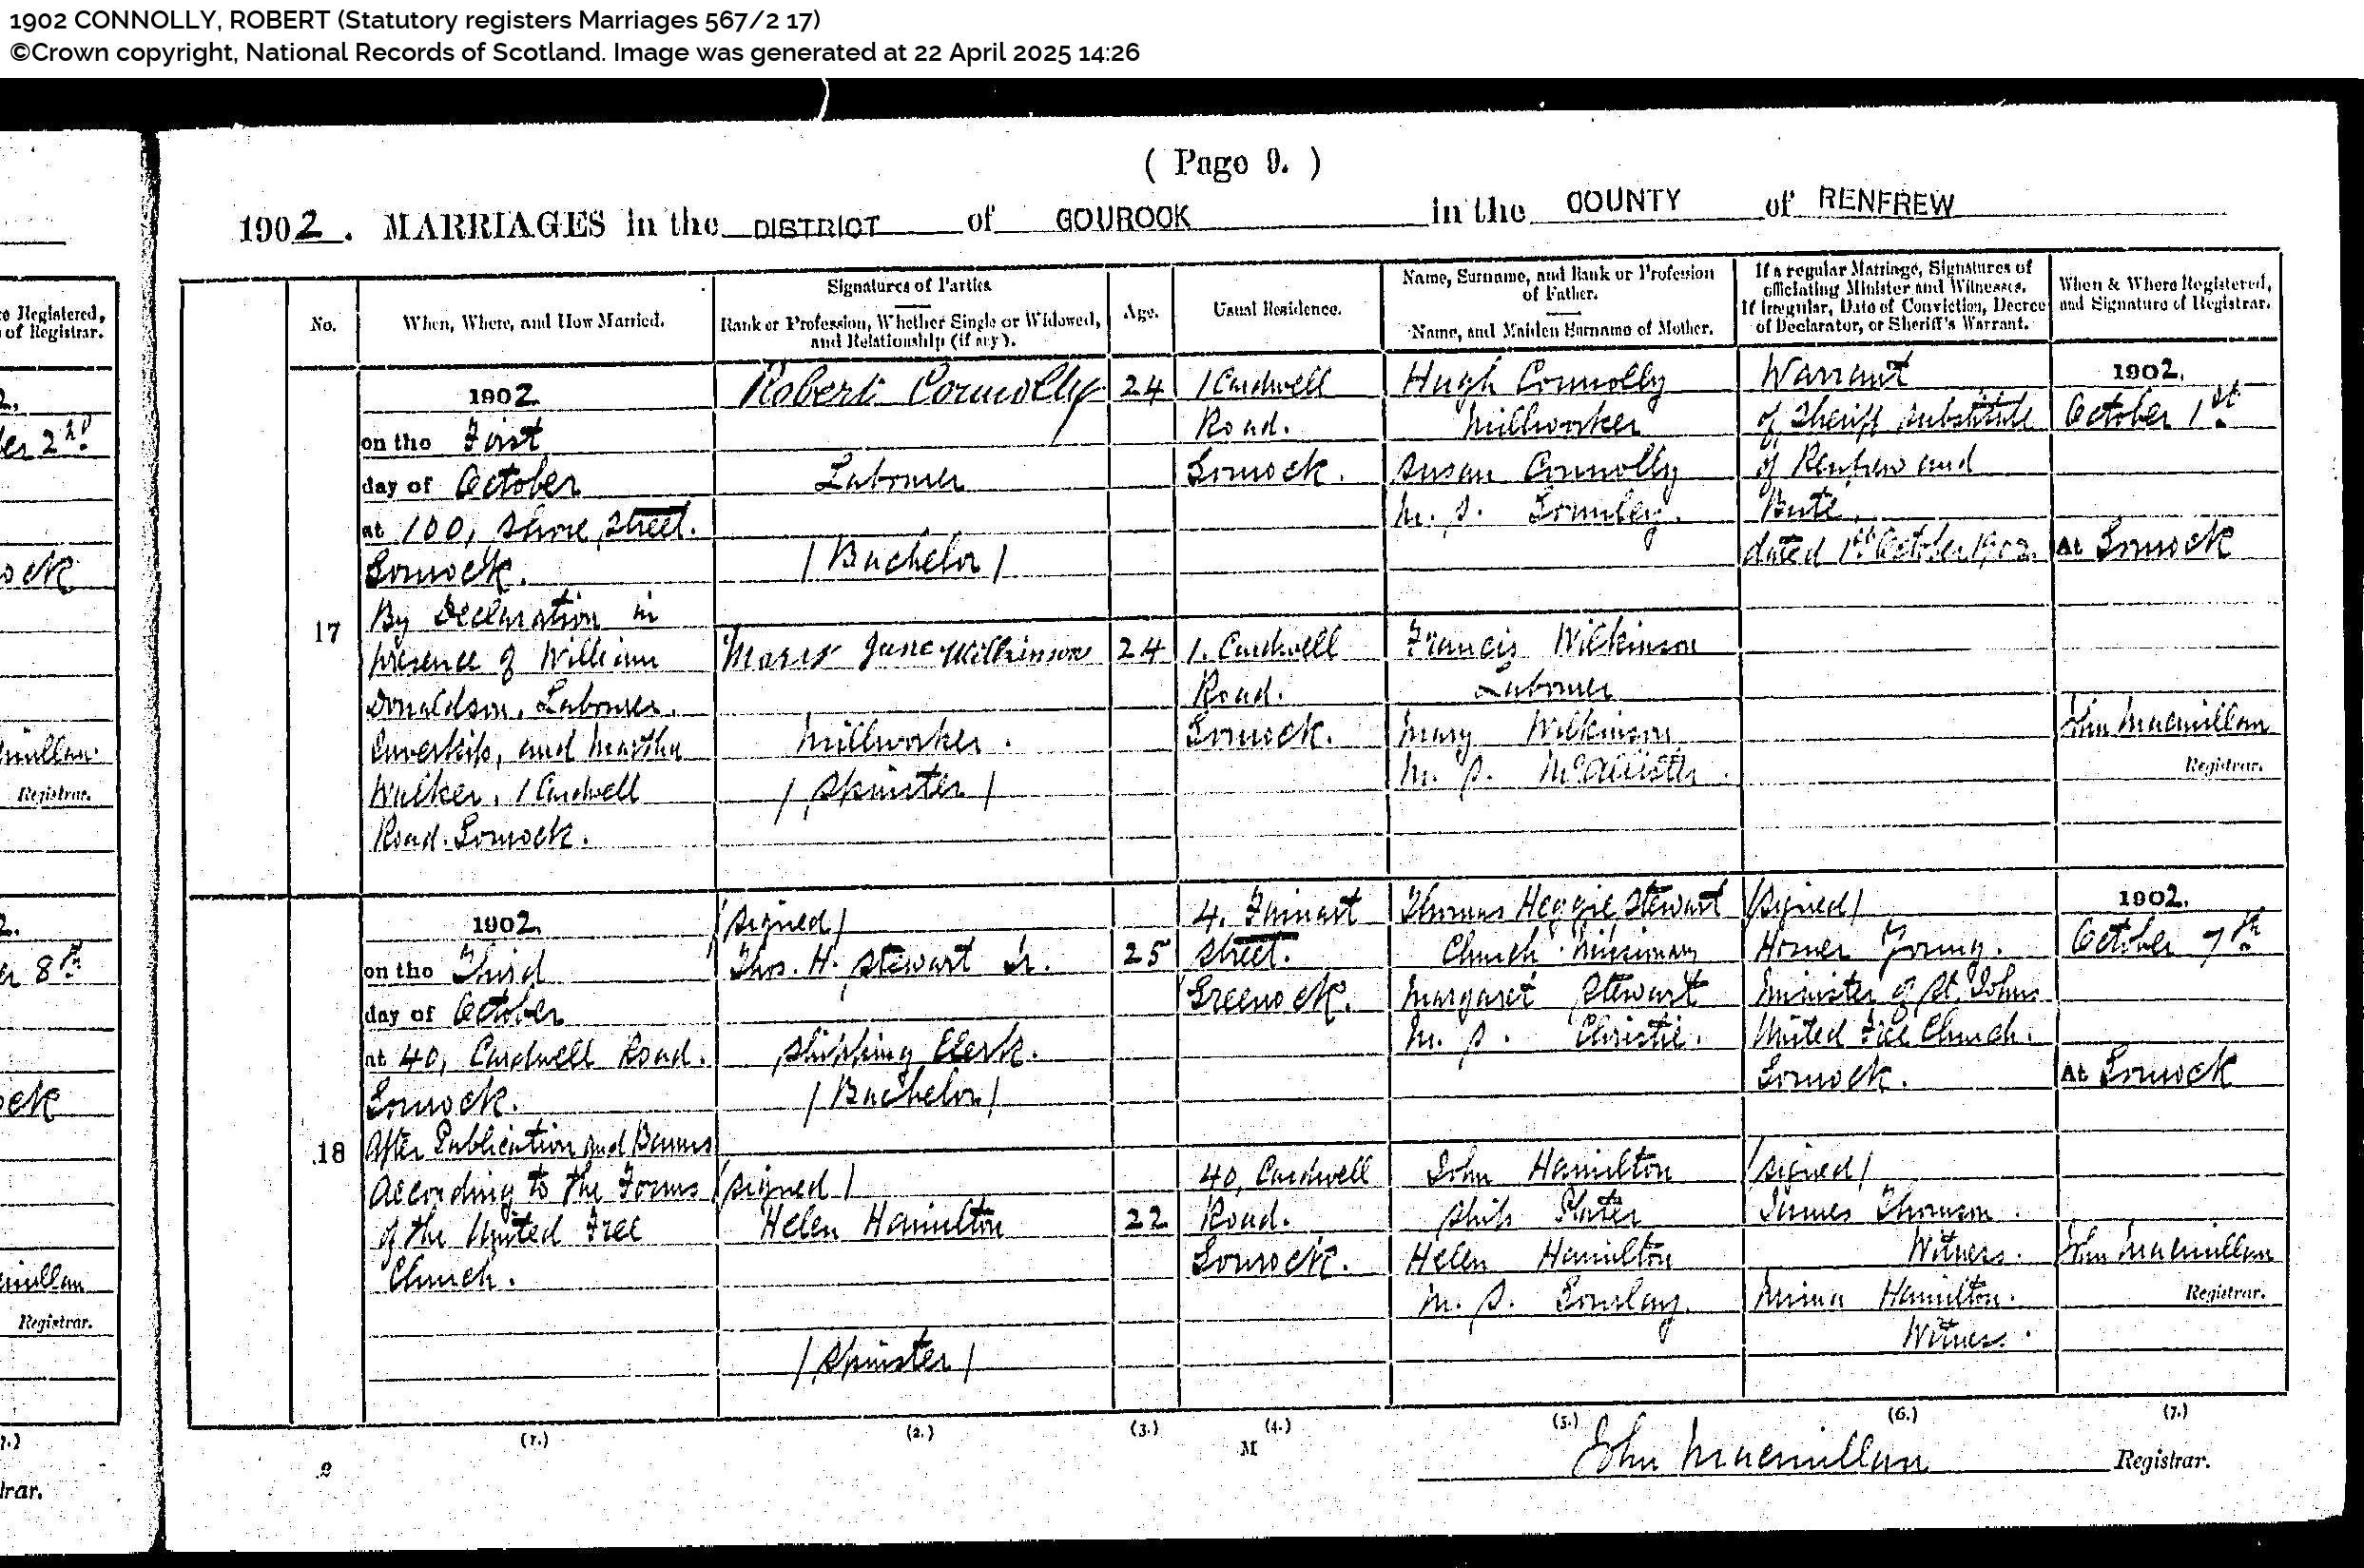 1902 CONNOLLY, ROBERT (Statutory registers Marriages 567/2 17)
©Crown copyright, National Records of Scotland. Image was generated at 22 April 2025 14:26
( Page 9. )
1902. MARRIAGES in the DISTRICT of GOUROCK in the COUNTY of RENFREW
No.
When, Where, and How Married.
Signatures of Parties
Rank or Profession, Whether Single or Widowed,
and Relationship (if any).
Age.
Usual Residence.
Name, Surname, and Rank or Profession
of Father.
Name, and Maiden Surname of Mother.
If a regular Marriage, Signatures of
officiating Minister and Witnesses.
If Irregular, Date of Conviction, Decree
of Declarator, or Sheriff's Warrant.
When & Where Registered,
and Signature of Registrar.
17
1902.
on the First
day of October
at 100, Shore Street.
Gourock.
By Declaration in
presence of William
Donaldson, Labourer,
Inverkip, and Martha
Walker, 1 Cardwell
Road. Gourock.
Robert Connolly
Labourer
(Bachelor)
Mary Jane Wilkinson
Millworker.
(Spinster)
24
24
1 Cardwell
Road.
Gourock.
1. Cardwell
Road.
Gourock.
Hugh Connolly
Millworker
Susan Connolly
M. S. Gormley.
Francis Wilkinson
Labourer
Mary Wilkinson
M. S. McAllister.
Warrant
of Sheriff Substitute
of Renfrew and
Bute,
dated 1st October 1902.
1902.
October 1st
At Gourock
John Macmillan
Registrar.
18
1902.
on the Third
day of October
at 40, Cardwell Road.
Gourock.
After Publication and Banns
According to the Forms
of the United Free
Church.
(Signed)
Thos. H. Stewart Jr.
Shipping Clerk.
(Bachelor)
(Signed)
Helen Hamilton
(Spinster)
25
22
4. Street.
Greenock.
40, Cardwell
Road.
Gourock.
Thomas Heggie Stewart
Church Missionary
Margaret Stewart
M. S. Christie.
John Hamilton
Ship Plater
Helen Hamilton
M. S. Gourlay.
(Signed)
Homer Young.
Minister of St. Johns
United Free Church.
Gourock.
(Signed)
James Thomson.
Witness.
Mina Hamilton.
Witness.
1902.
October 7th
At Gourock
John Macmillan
Registrar.
(1.) (2.) (3.) (4.) (5.) (6.) (7.)
2
M
John Macmillan Registrar.